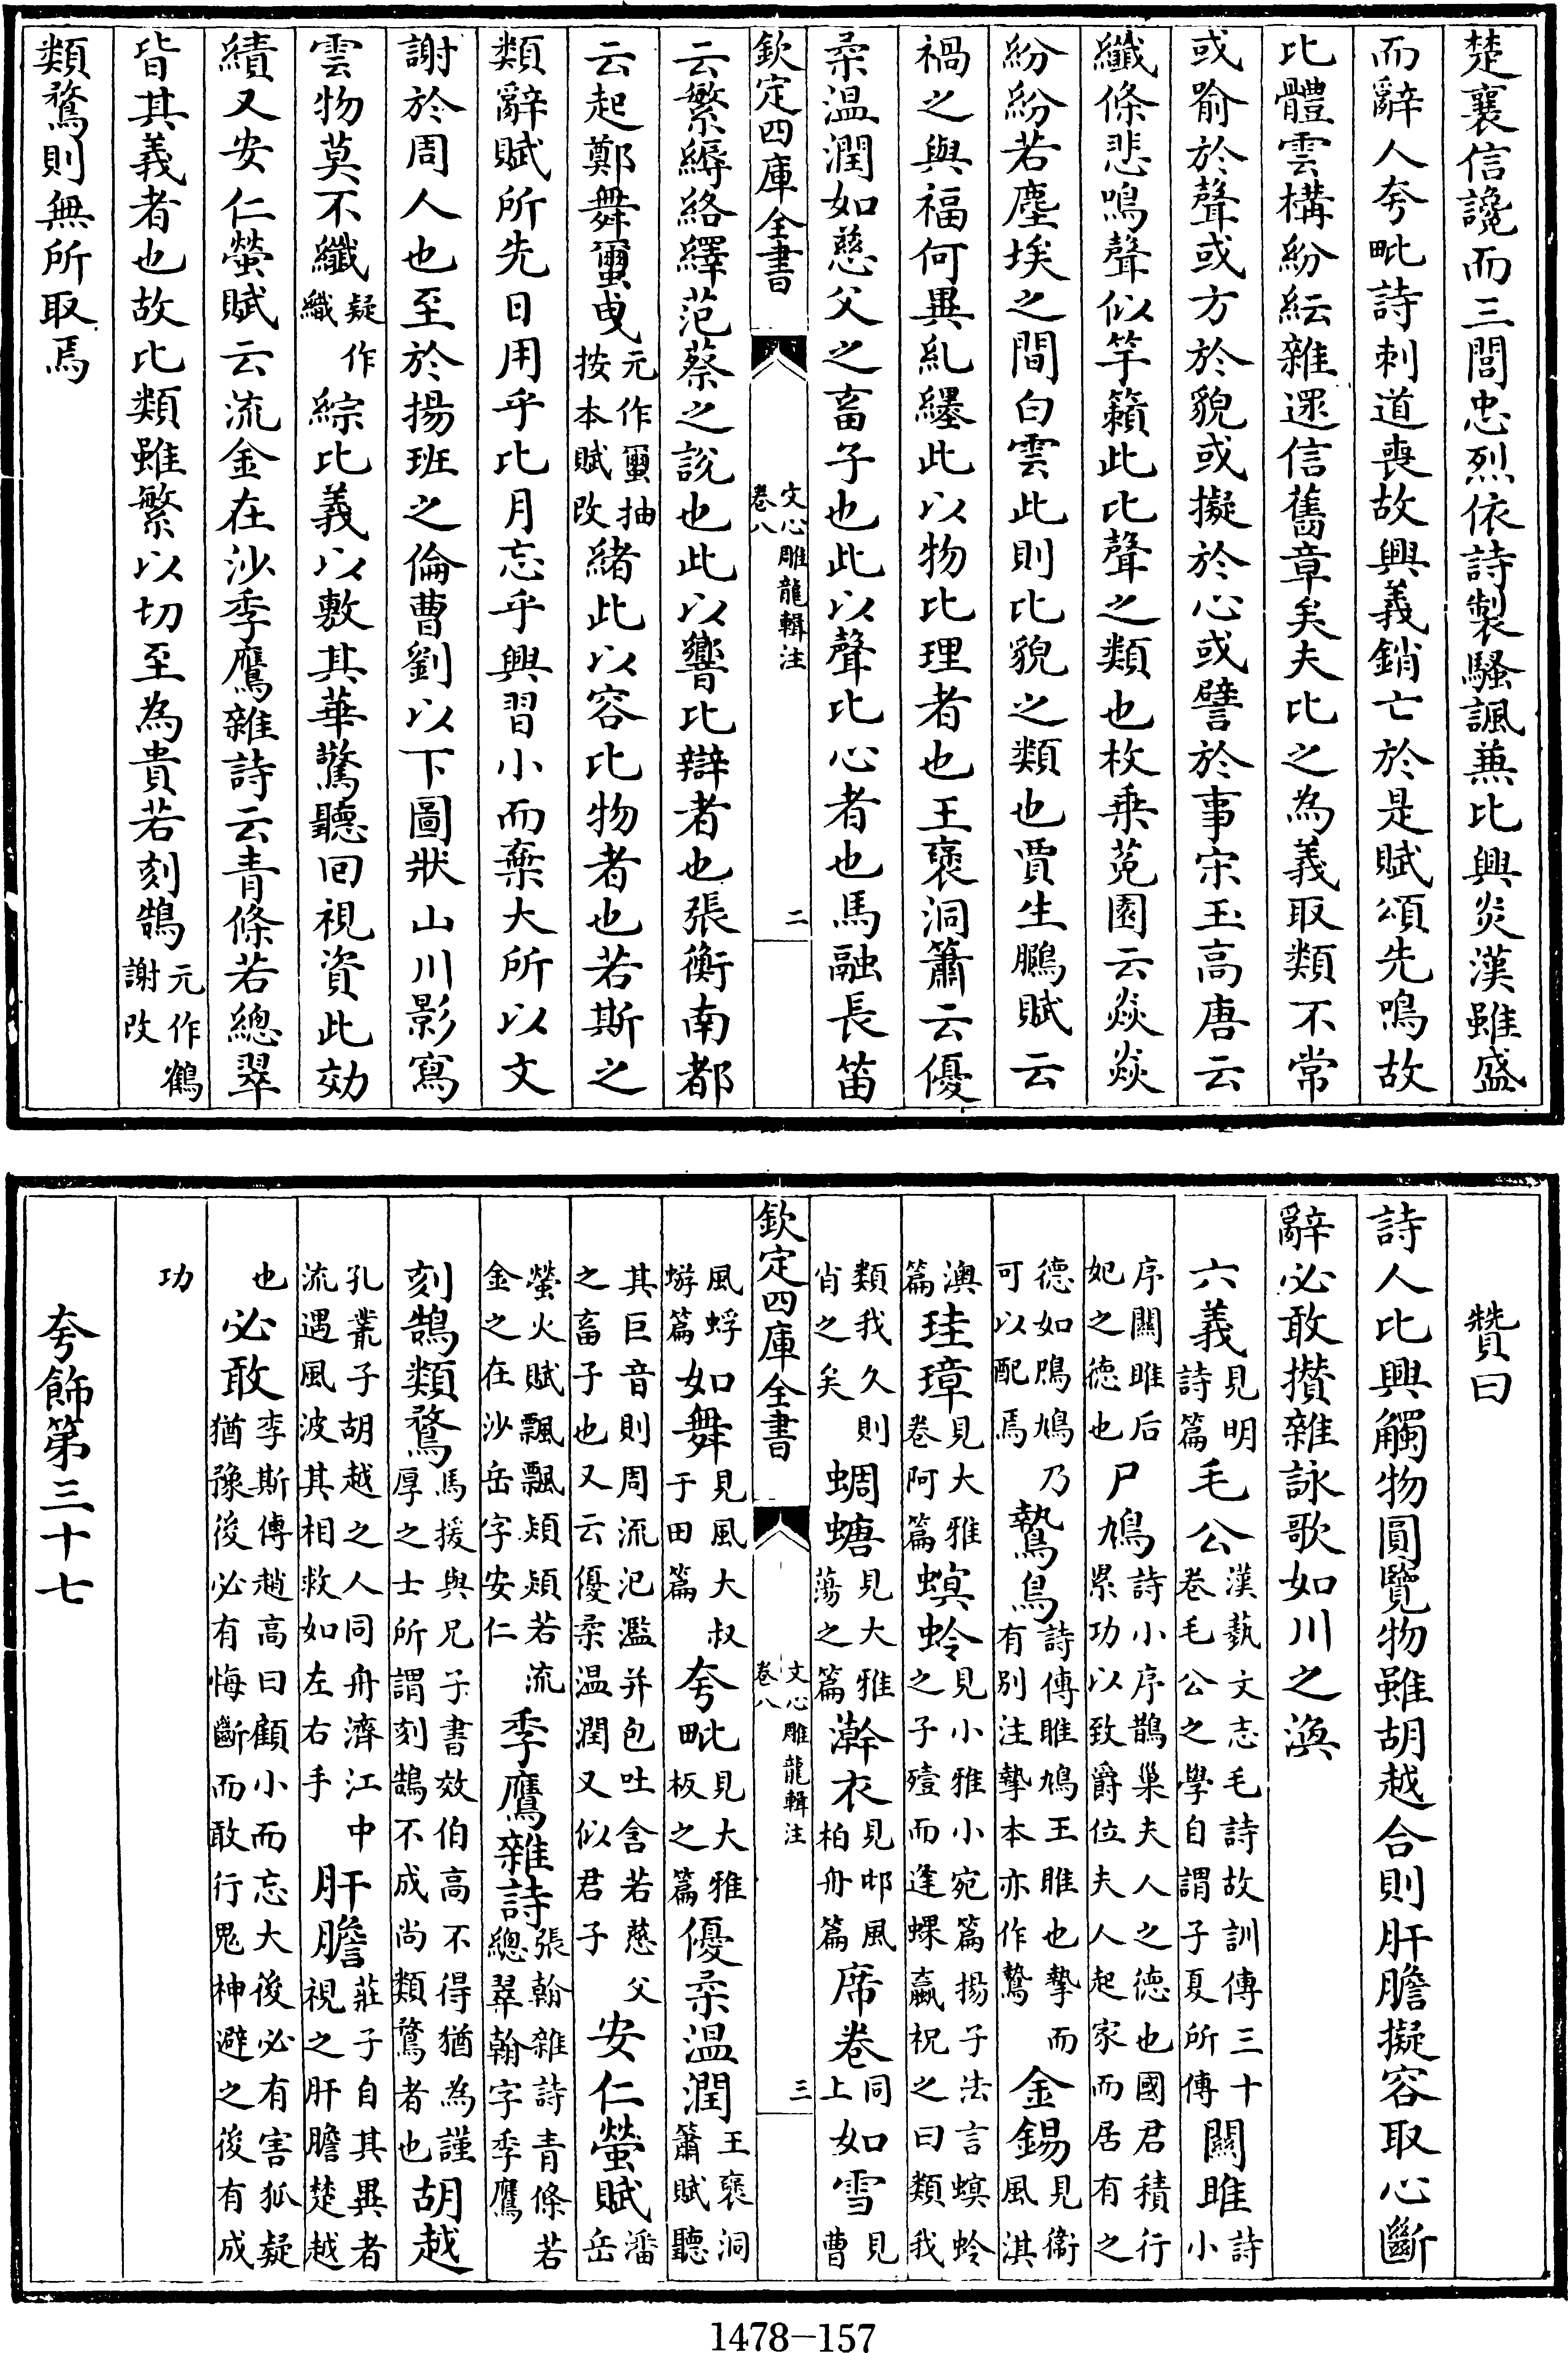 楚襄信讒而三閭忠烈依詩製騷諷兼比興炎漢雖盛
而辭人夸毗詩刺道喪故興義銷亡於是賦頌先鳴故
比體雲構紛紜雜遝信舊章矣夫比之為義取類不常
或喻於聲或方於貌或擬於心或譬於事宋玉高唐云
纖條悲鳴聲似竽籟此比聲之類也枚乗菟園云焱焱
紛紛若塵埃之間白雲此則比貌之類也賈生鵬賦云
禍之與福何異糺纆此以物比理者也王褒洞簫云優
柔温潤如慈父之畜子也此以聲比心者也馬融長笛
欽定四庫全書 文心雕龍輯注 卷八 二
云繁縟絡繹范蔡之說也此以響比辯者也張衡南都
云起鄭舞䘉曳元作䘉抽按本賦改緒此以容比物者也若斯之
類辭賦所先日用乎比月忘乎興習小而棄大所以文
謝於周人也至於揚班之倫曹劉以下圖狀山川影寫
雲物莫不纖疑作織綜比義以敷其華驚聽回視資此効
績又安仁螢賦云流金在沙季鷹雜詩云青條若總翠
皆其義者也故比類雖繁以切至為貴若刻鵠元作鶴謝改
類鶩則無所取焉
贊曰
詩人比興觸物圓覽物雖胡越合則肝膽擬容取心斷
辭必敢攅雜詠歌如川之渙
六義見明詩篇毛公漢藝文志毛詩故訓傳三十卷毛公之學自謂子夏所傳關雎詩小
序關雎后妃之德也尸鳩詩小序鵲巢夫人之德也國君積行累功以致爵位夫人起家而居有之
德如鳲鳩乃可以配焉鷙鳥詩傳雎鳩王雎也摯而有别注摯本亦作鷙金錫見衞風淇
澳篇珪璋見大雅卷阿篇螟蛉見小雅小宛篇揚子法言螟蛉之子殪而逢蜾蠃祝之曰類我
類我久則肖之矣蜩螗見大雅蕩之篇澣衣見邶風柏舟篇席卷同上如雪見曹
欽定四庫全書 文心雕龍輯注 卷八 三
風蜉蝣篇如舞見風大叔于田篇夸毗見大雅板之篇優柔温潤王褒洞簫賦聽
其巨音則周流氾濫并包吐含若慈父之畜子也又云優柔温潤又似君子安仁螢賦潘岳
螢火賦飄飄熲熲若流金之在沙岳字安仁季鷹雜詩張翰雜詩青條若總翠翰字季鷹
刻鵠類鶩馬援與兄子書效伯高不得猶為謹厚之士所謂刻鵠不成尚類鶩者也胡越
孔叢子胡越之人同舟濟江中流遇風波其相救如左右手肝膽莊子自其異者視之肝膽楚越
也必敢李斯傳趙高曰顧小而忘大後必有害狐疑猶豫後必有悔斷而敢行鬼神避之後有成
功
夸飾第三十七
1478-157